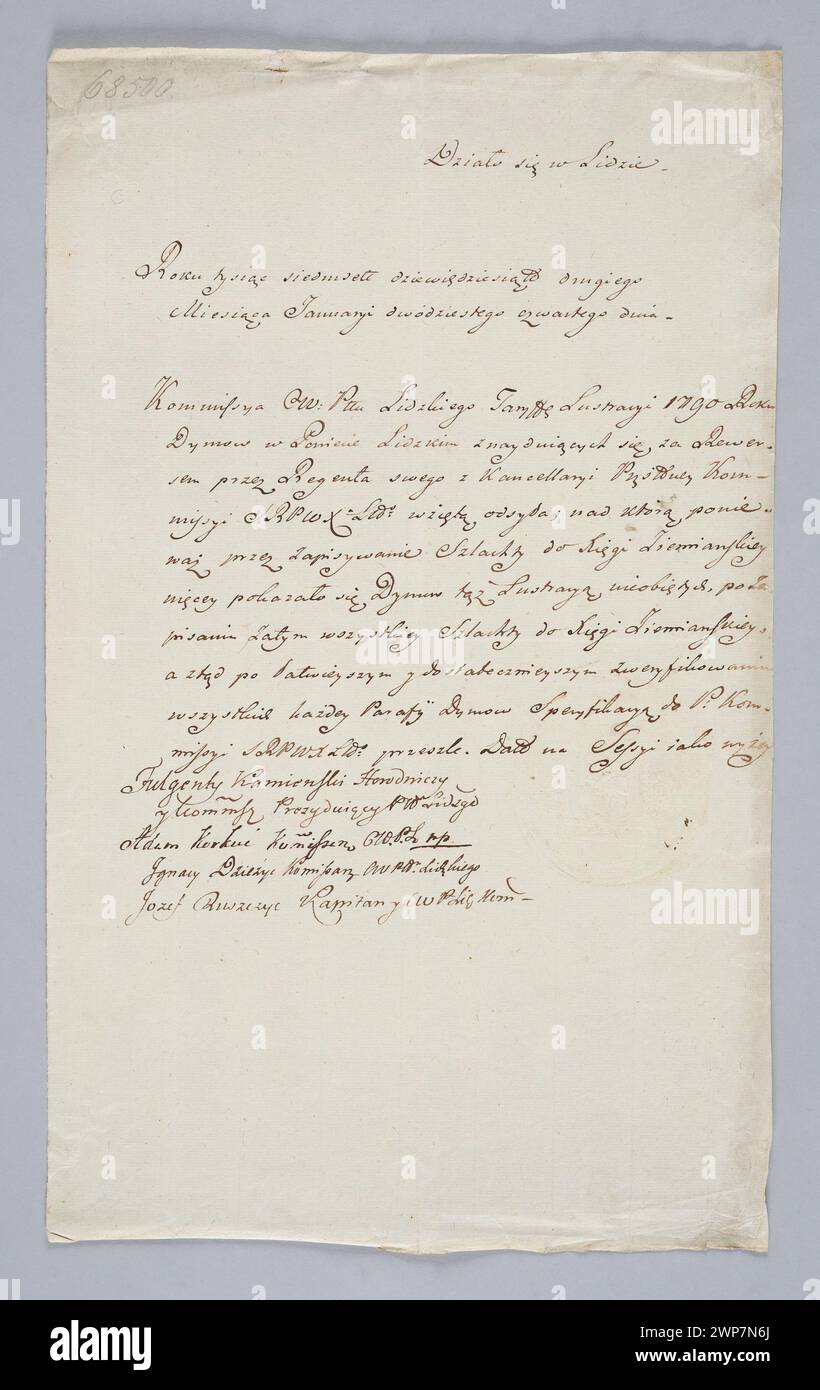 68500.
Działo się w Lidzie
Roku tysiąc siedmset dziewiędziesiąt drugiego
Miesiąca Januaryi dwódziestego czwartego dnia
Kommissya CW: Pttu Lidzkiego Taryffę Lustracyi 1790 Roku
Dymow w Powiecie Lidzkim znayduiących się, za Rewer-
sem przez Regenta swego z Kancellaryi Kom-
missyi SRPWX Ltto wziętą odsyła; nad którą ponie-
waż przez zapisywanie Szlachty do Xięgi Ziemianskiey
więcey pokazało się Dymow tąż Lustracyą nieobiętych, po Za
pisaniu zatym wszystkiey Szlachty do Xięgi Ziemianskiey,
a ztąd po łatwieyszym y dostatecznieyszym zweryfikowaniu
wszystkich każdey Parafij Dymow Specyfikacyą do Kom-
missyi SRPWX Ltto przeszle. Datt na Sessyi iako wyżey
Fulgenty Kamienski Horodniczy
Prezyduiący
Adam Korkuć
Ignacy Dzieżyc Komissarz
Jozef Ruszczyc Kapitan
alamy
alamy
Image ID: 2WP7N6J
www.alamy.com